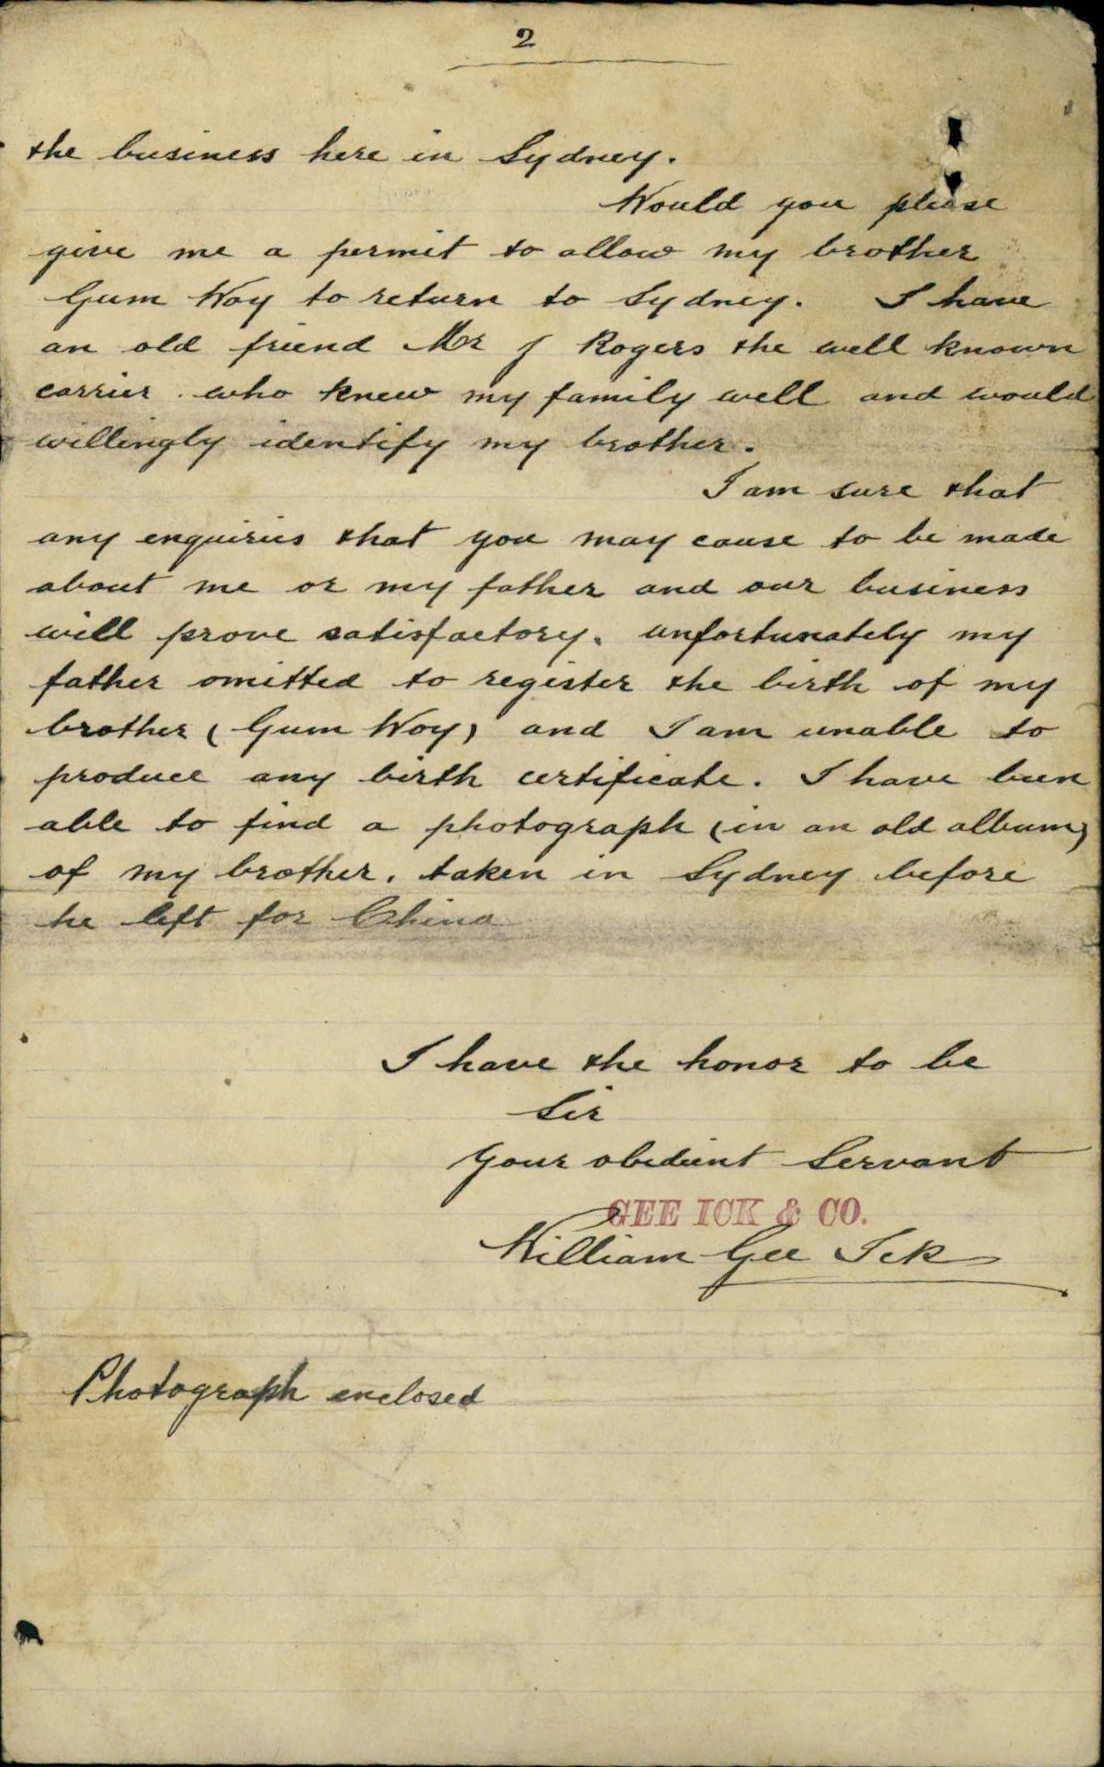 2
the business here in Sydney.
Would you please
give me a permit to allow my brother
Gum Woy to return to Sydney. I have
an old friend Mr J Rogers the well known
carrier . who knew my family well and would
willingly identify my brother.
I am sure that
any enquiries that you may cause to be made
about me or my father and our business
will prove satisfactory. unfortunately my
father omitted to register the birth of my
brother (Gum Woy) and I am unable to
produce any birth certificate. I have been
able to find a photograph (in an old album)
of my brother. taken in Sydney before
he left for China
I have the honor to be
Sir
Your obedient Servant
GEE ICK & CO.
William Gee Ick
Photograph enclosed